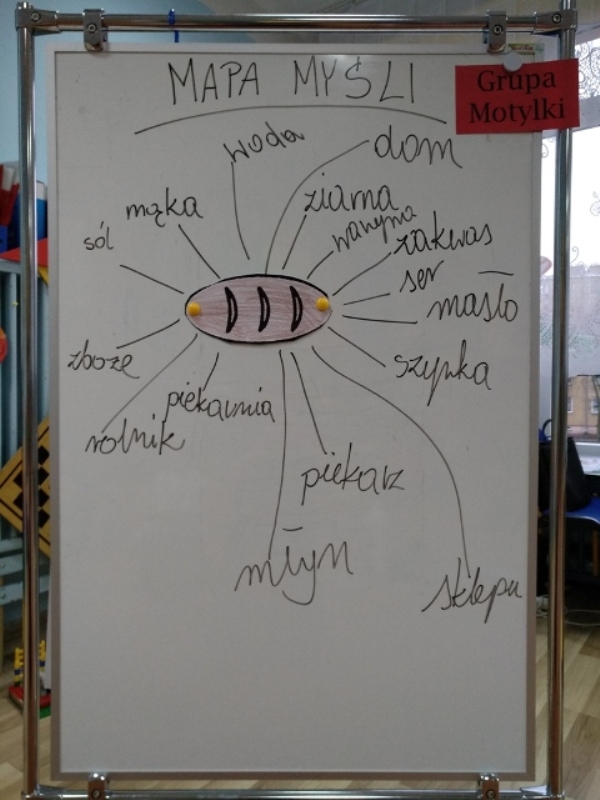 MAPA MYŚLI
Grupa
Motylki
woda
dom
mąka
ziarna
warzywa
zakwas
sól
ser
masło
zboże
szynka
rolnik
piekarnia
piekarz
młyn
sklepu